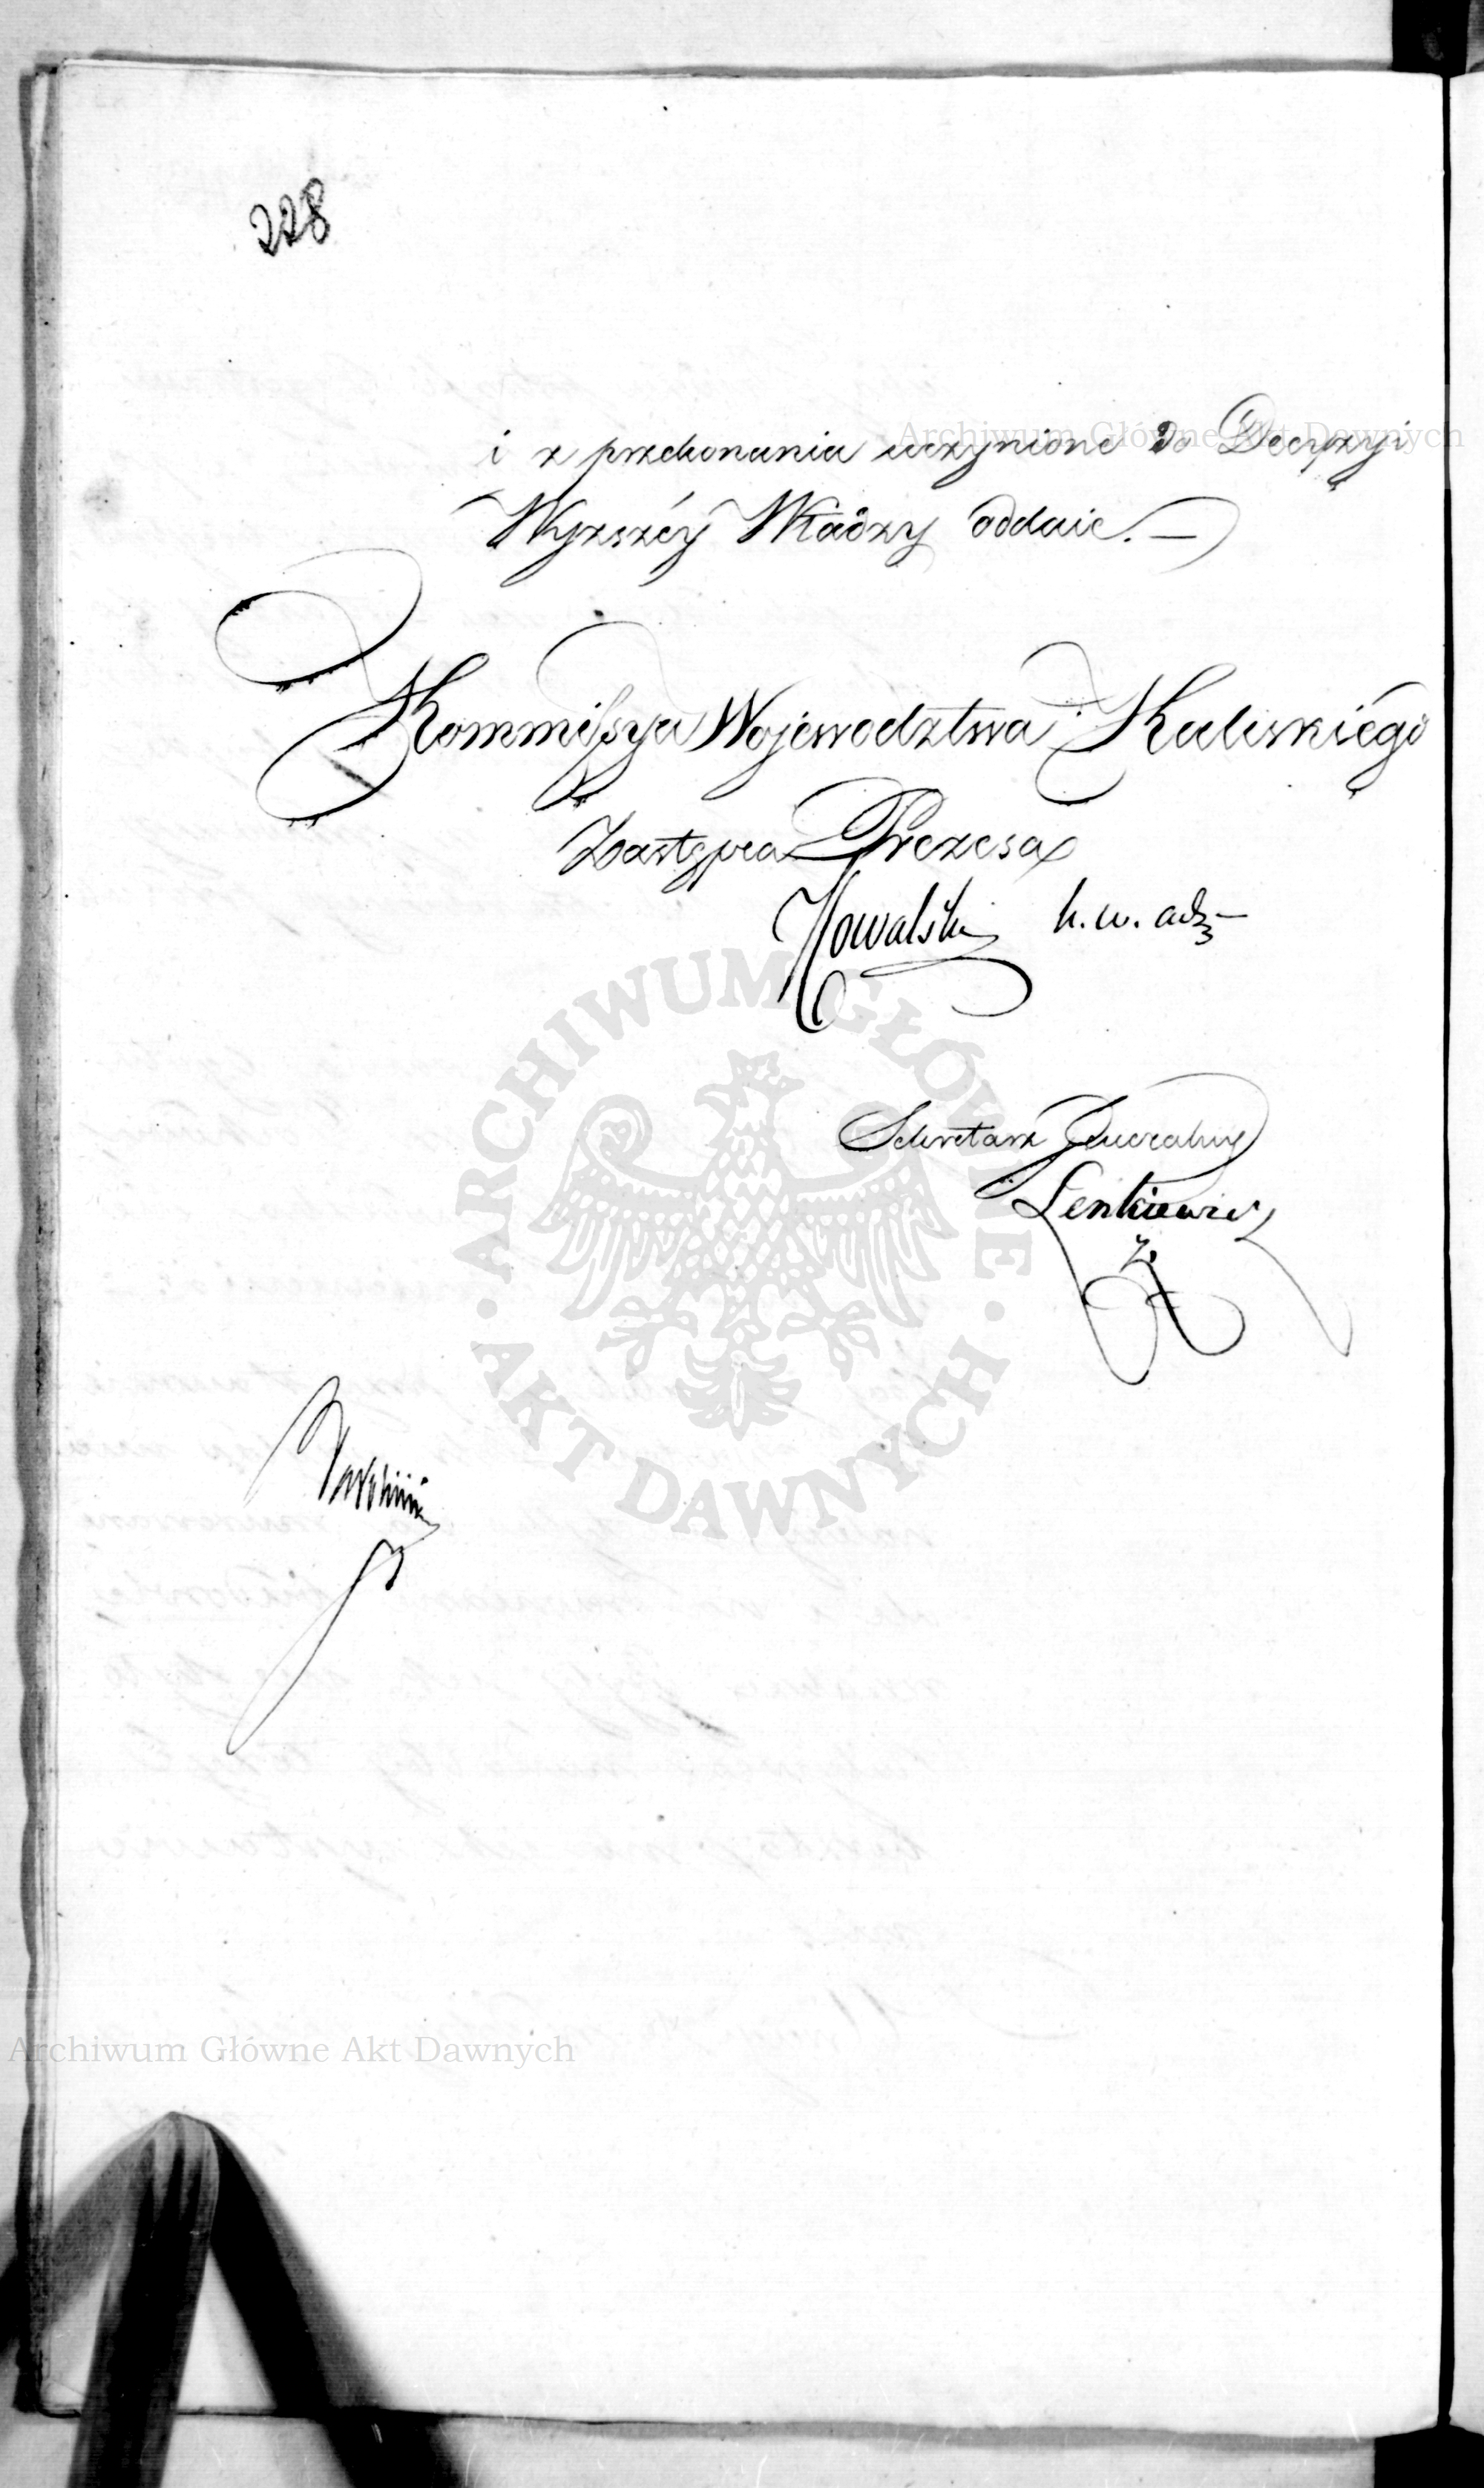 228
i z przekonania uczynione do Decyzyi
Wyzszéy Władzy oddaie. —
Kommissya Województwa Kaliskiégo
Zastępca Prezesa
Kowalski k. w. adz
Sekretarz Jeneralny
Lenkiewicz
Archiwum Główne Akt Dawnych
ARCHIWUM GŁÓWNE · AKT DAWNYCH ·
Archiwum Główne Akt Dawnych